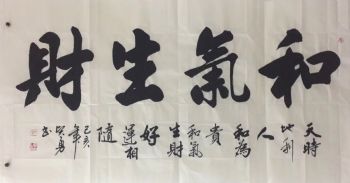 和氣生財
天時
地利
人
和為
貴
和氣
生財
好
運相
隨
己亥
年